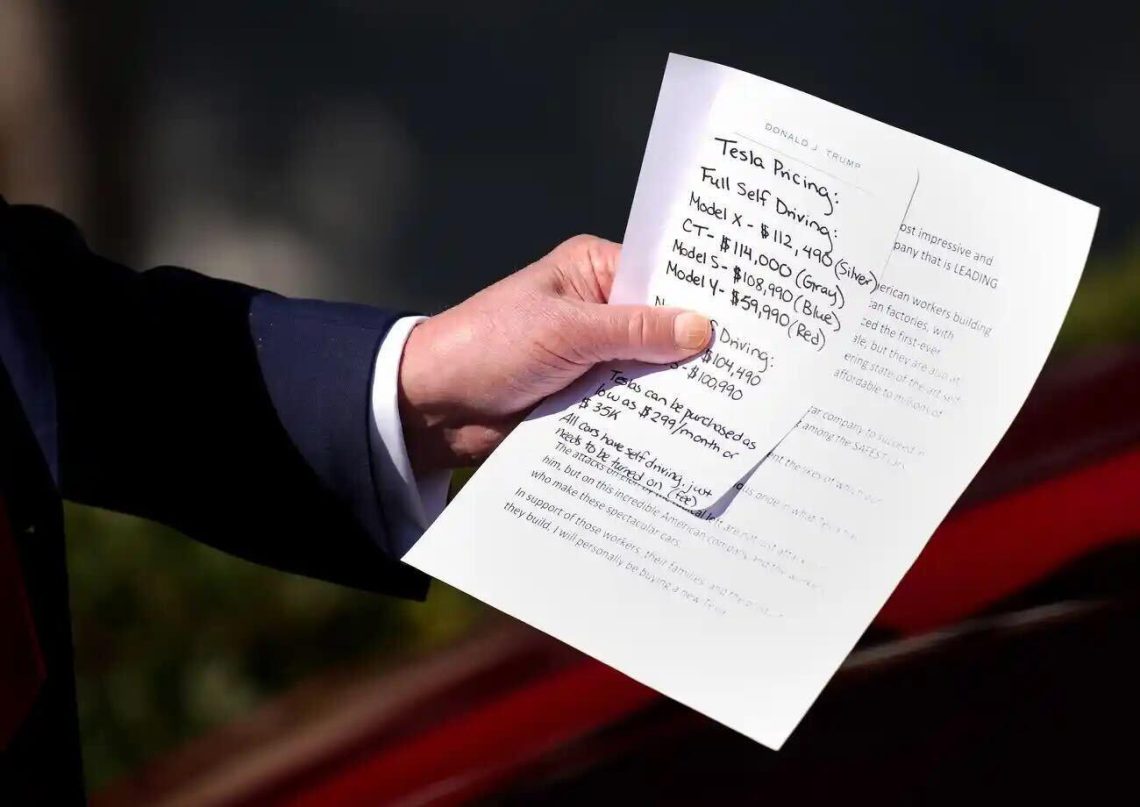 DONALD J. TRUMP
Tesla Pricing:
Full Self Driving:
Model X - $112,490 (Silver)
CT - $114,000 (Gray)
Model S - $108,990 (Blue)
Model Y - $59,990 (Red)
Driving:
$104,490
S - $100,990
Teslas can be purchased as
low as $299/month or
$35K
All cars have self driving, just
needs to be turned on (fee)
ost impressive and
pany that is LEADING
erican workers building
can factories, with
ced the first-ever
ale, but they are also at
ering state of the art self
affordable to millions of
ar company to succeed in
among the SAFEST
nt the likes of which
The attacks al left are not just
him, but on this incredible American company, and the
who make these spectacular cars.
In support of those workers, their families, and the
they build, I will personally be buying a new Tesla